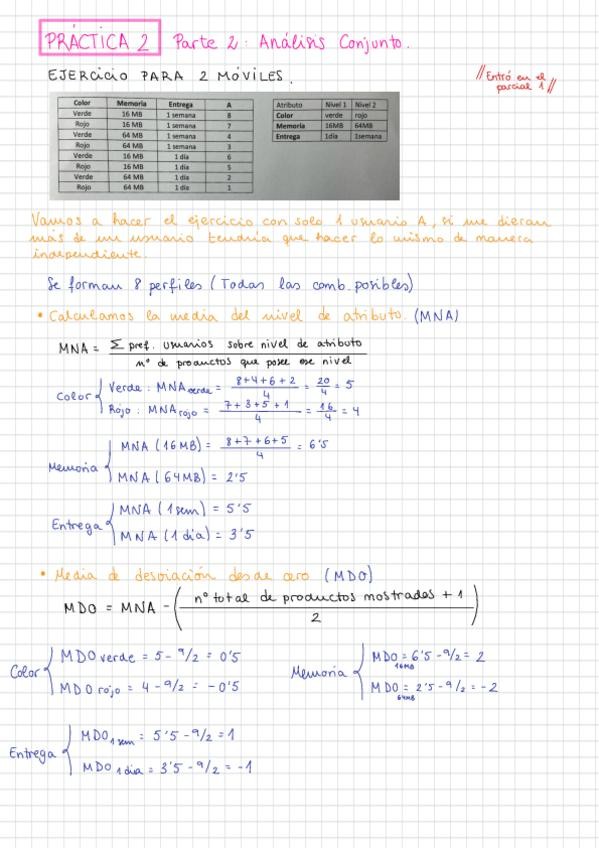 PRÁCTICA 2 Parte 2: Análisis Conjunto.
EJERCICIO PARA 2 MÓVILES.
//Entró en el
parcial 1//
Color Memoria Entrega A
Verde 16 MB 1 semana 8
Rojo 16 MB 1 semana 7
Verde 64 MB 1 semana 4
Rojo 64 MB 1 semana 3
Verde 16 MB 1 día 6
Rojo 16 MB 1 día 5
Verde 64 MB 1 día 2
Rojo 64 MB 1 día 1
Atributo Nivel 1 Nivel 2
Color verde rojo
Memoria 16MB 64MB
Entrega 1día 1semana
Vamos a hacer el ejercicio con solo 1 usuario A, si me dieran
más de un usuario tendría que hacer lo mismo de manera
independiente.
Se forman 8 perfiles (Todas las comb. posibles)
• Calculamos la media del nivel de atributo. (MNA)
MNA = Σ pref. usuarios sobre nivel de atributo
nº de productos que posee ese nivel
Color { Verde: MNA verde = 8+4+6+2 / 4 = 20/4 = 5
Rojo: MNA rojo = 7+3+5+1 / 4 = 16/4 = 4
Memoria { MNA (16MB) = 8+7+6+5 / 4 = 6'5
MNA (64MB) = 2'5
Entrega { MNA (1 sem) = 5'5
MNA (1 dia) = 3'5
• Media de desviación desde cero (MDO)
MDO = MNA - ( nº total de productos mostrados + 1 / 2 )
Color { MDO verde = 5 - 9/2 = 0'5
MDO rojo = 4 - 9/2 = -0'5
Memoria { MDO 16MB = 6'5 - 9/2 = 2
MDO 64MB = 2'5 - 9/2 = -2
Entrega { MDO 1 sem = 5'5 - 9/2 = 1
MDO 1 dia = 3'5 - 9/2 = -1